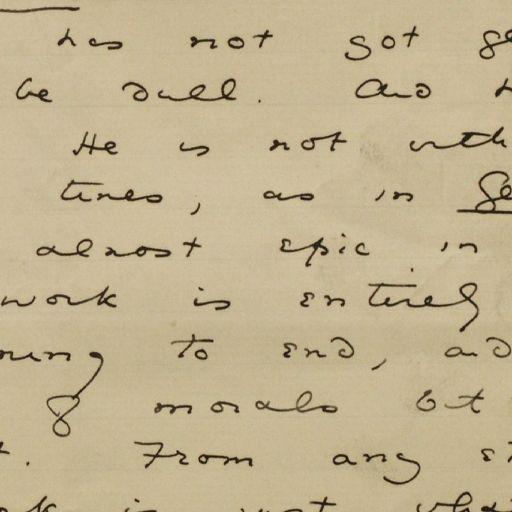 has not got
be dull. And
He is not
times, as in
almost epic in
work is entirely
to end, and
of morals but
From any
is not